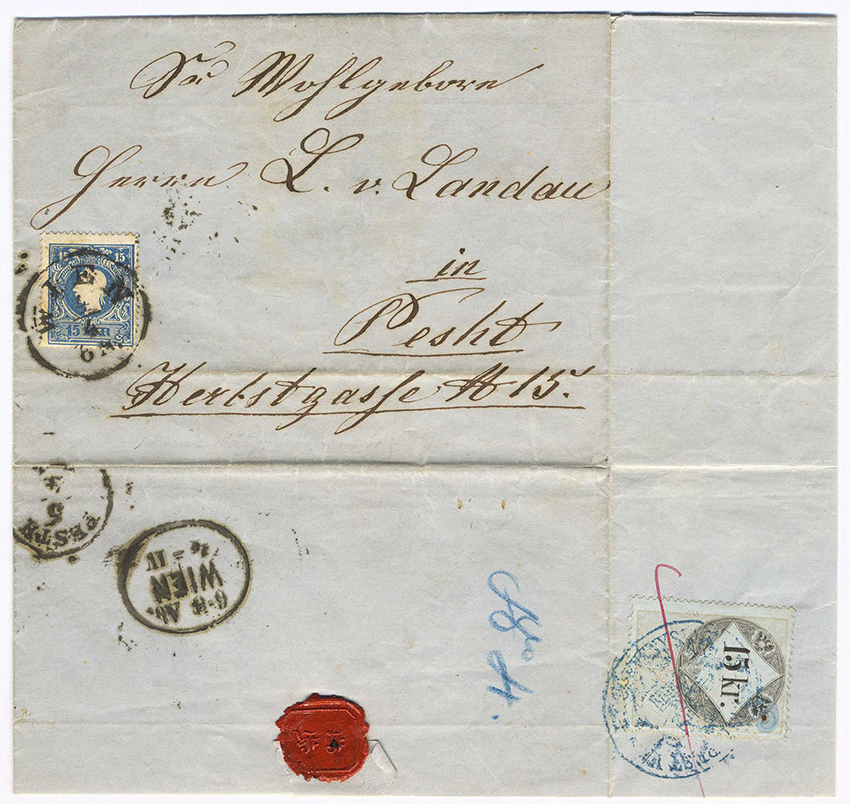 Sr Wohlgebore
Herrn L. v. Landau
in
Pesht
Herbstgasse № 15.
15
15 KR
WIEN
4
6 A.
PESTH
5
4
6-8 AB.
WIEN
IV
No 4.
15 kr.